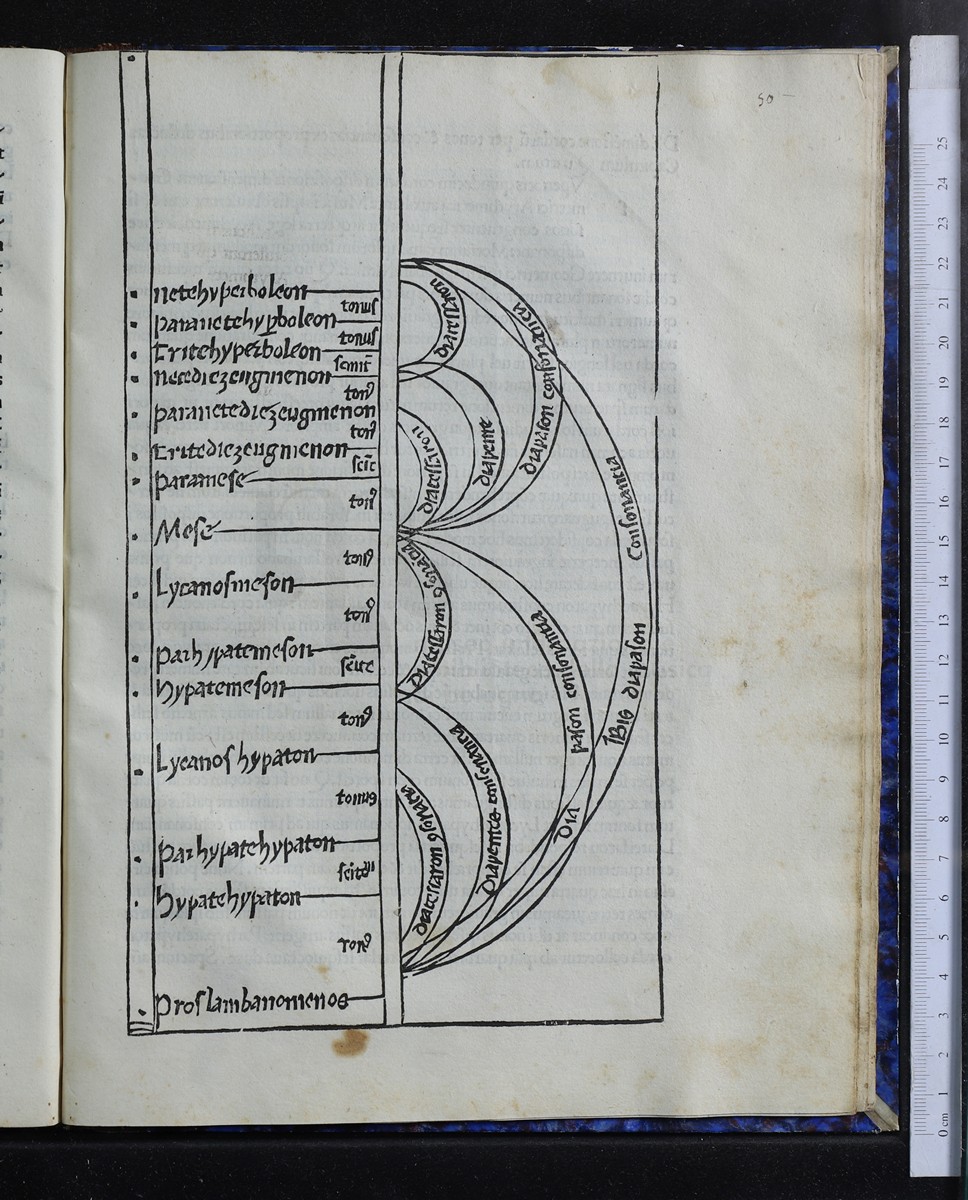 50
netehyperboleon
tonus
paranetehyꝑboleon
tonus
tritehyperboleon
semit̄
netediezeugmenon
ton⁹
paranetediezeugmenon
ton⁹
tritediezeugmenon
paramese
ton⁹
Mese
ton⁹
Lycanosmeson
ton⁹
parhypatemeson
hypatemeson
ton⁹
Lycanos hypaton
tonus
parhypatehypaton
hypatehypaton
ton⁹
proslambanomenos
diatessaron
diapason consonantia
diatessaron
diapente
Consonantia
Bis diapason
diatessaron
pason consonantia
Dia
Diapente consonantia
diatessaron
25
24
23
22
21
20
19
18
17
16
15
14
13
12
11
10
9
8
7
6
5
4
3
2
1
0 cm